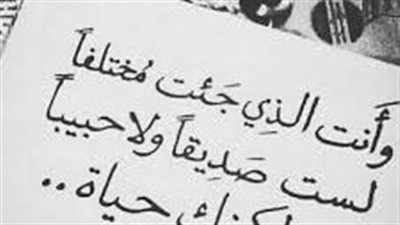 وَأَنت الذِي جَئت مُختلفاً
لست صَدِيقاً ولا حبيباً
لكنك حياة..